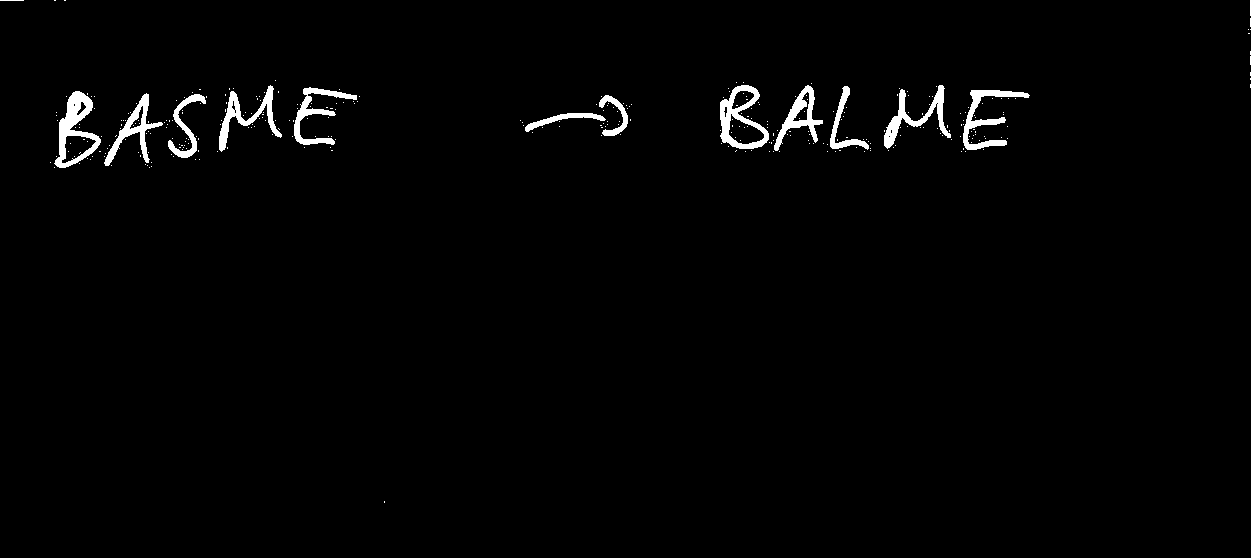 BASME → BALME